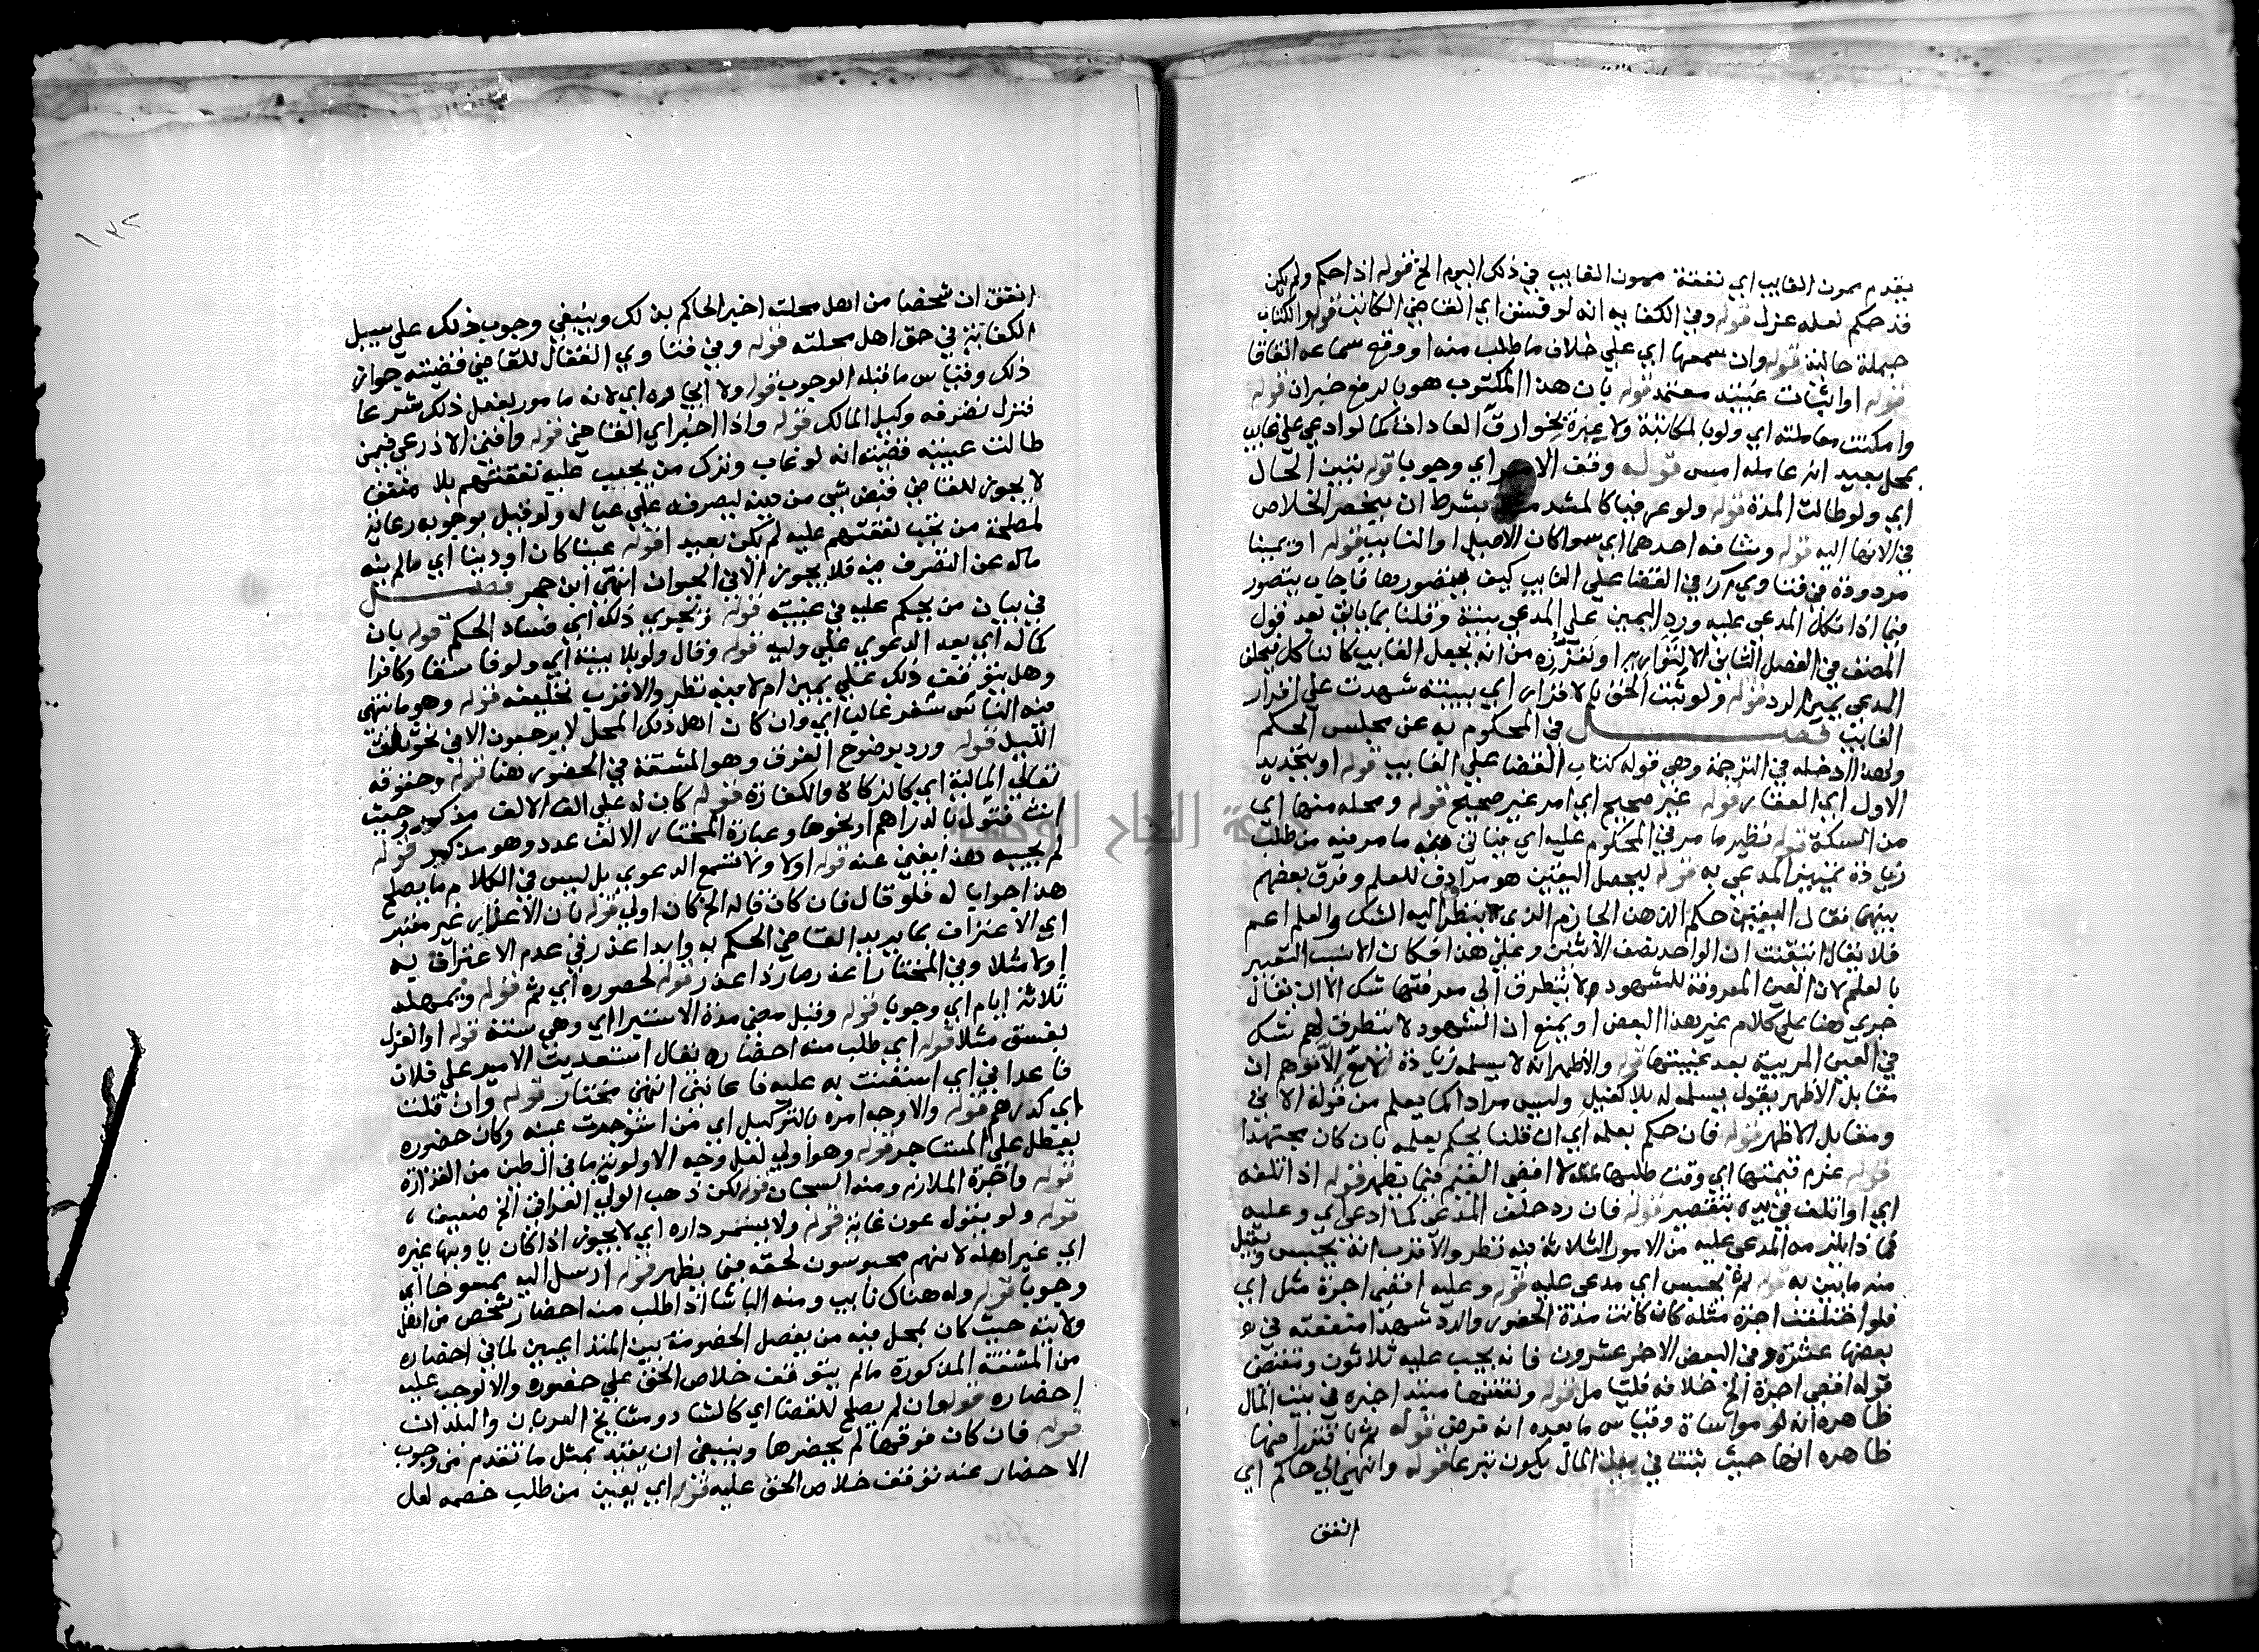 يقدم ممون الغايب اي نفقة ممون الغايب في ذلك اليوم الخ قوله اذا حكم ولم يكن
قد حكم لعله عزل قوله وفي الكفاية انه لو فسق اي القاضي الكاتب قوله والكتاب
جملة حالية قوله وان سمعها اي علي خلاف ما طلب منه او وقع سماعه اتفاقا
قوله او اثبات عيبته معتمد قوله بان هذا المكتوب هو بالرفع خبر ان قوله
وامكنت معاملته اي ولو بالمكاتبة ولا عبرة بخوارق العادات كما لو ادعي علي غايب
بمحل بعيد انه عامله امس قوله وقف الامر اي وجوبا قوله تبين الحال
اي ولو طالت المدة قوله ولو عرفيا كالمشد بشرط ان ينحصر الخلاص
في الانها اليه قوله وشافه احدهما اي سوا كان الاصيل او النايب قوله او يمينا
مردودة في فتاوي م ر في القضا علي الغايب كيف يتصور وها فاجاب يتصور
فيما اذا نكل المدعي عليه ورد اليمين علي المدعي بينة وقلنا بما ياتي بعد قول
المصنف في الفصل الثاني الا لتواريه او تعززه من انه يجعل الغايب كالناكل فيحلف
المدعي يمين الرد قوله ولو ثبت الحق بالاقرار اي ببينة شهدت علي اقرار
الغايب فصل في المحكوم به عن مجلس الحكم
ولهذا ادخله في الترجمة وهي قوله كتاب القضا علي الغايب قوله او بتحديد
الاول اي العقار قوله غير صحيح اي امر غير صحيح قوله ومحله منها اي
من السكة قوله نظير ما مر في المحكوم عليه اي فياتي فيه ما مر فيه من طلب
زيادة تمييز المدعي به قوله ليحصل اليقين هو مرادف للعلم وفرق بعضهم
بينهما فقال اليقين حكم الذهن الجازم الذي لا يتطرق اليه الشك والعلم اعم
فلا يقال تيقنت ان الواحد نصف الاثنين وعلي هذا فكان الانسب التعبير
بالعلم لان العين المعروفة للشهود لا يتطرق الي معرفتها شك الا ان يقال
جري هنا علي كلام غير هذا البعض او يمنع ان الشهود لا يتطرق لهم شك
في العين المريبة بعد غيبتها قوله والاظهر انه لا يسلمه زيادة الايضاح لانه يوهم ان
مقابل الاظهر يقول يسلمه له بلا كفيل وليس مرادا كما يعلم من قوله الاتي
ومقابل الاظهر قوله فان حكم بعلمه اي ان قلنا يحكم بعلمه بان كان مجتهدا
قوله غرم قيمتها اي وقت طلبها لا اقصي القيم فيما يظهر قوله اذا اتلفه
اي او اتلف في يده بتقصير قوله فان رد حلف المدعي كما ادعي اي وعليه
فماذا يلزمه المدعي عليه من الامور الثلاثة فيه نظر والاقرب انه يحبس ويقبل
منه ما يبين به قوله ثم يحبس اي مدعي عليه قوله وعليه اقصي اجرة مثل اي
فلو اختلفت اجرة مثله كان كانت مدة الحضور والرد شهرا منفعته في
بعضها عشرة وفي البعض الاخر عشرون فانه يجب عليه ثلاثون ونقيض
قوله اقصي اجرة الخ خلافه فليتامل قوله ونفقتها حينئذ اجرة في بيت المال
ظاهره انه لو مواساة وقياس ما بعده انه قرض قوله ثم باقتراضها
ظاهره انها حيث ثبتت في بيت المال يكون تبرعا قوله وانهي الي حاكم اي
اتفق
اتفق ان شخصا من اهل محلته اخبر الحاكم بذلك وينبغي وجوب ذلك علي سبيل
الكفاية في حق اهل محلته قوله وفي فتاوي القفال للقاضي قضيته جواز
ذلك وقياس ما قبله الوجوب قوله ولا اجباره اي لانه مامور بفعل ذلك شرعا
فنزل تصرفه وكيل المالك قوله واذا اخبر اي القاضي قوله وافتي الاذرعي فيمن
طالت غيبته قضيته انه لو غاب وترك من يجب عليه نفقتهم بلا منفق
لا يجوز للقاضي قبض شي من دينه ليصرفه علي عياله ولو قيل بوجوبه رعاية
لمصلحة من تجب نفقتهم عليه لم يكن بعيدا قوله عينا كان او دينا اي ما لم ينه
ماله عن التصرف فيه فلا يجوز الا في الحيوان انتهي ابن حجر فصل
في بيان من يحكم عليه في غيبته قوله ويجري ذلك اي فساد الحكم قوله بان
كماله اي بعد الدعوي علي وليه قوله وقال ولو بلا بينة اي ولو فاسقا وكافرا
وهل يتوقف ذلك علي يمين ام لا فيه نظر والاقرب تحليفه قوله وهو ما ينتهي
فيه الناس سفر غالبا اي وان كان اهل ذلك المحل لا يرجعون الا في نحو ثلث
الليل قوله ورد بوضوح الفرق وهو المشقة في الحضور هنا قوله وحقوقه
تعالي المالية اي كالزكاة والكفارة قوله كان له علي الف الالف مذكر وحيث
انث فتاول بالدراهم او نحوها وعبارة المختار الالف عدد وهو مذكر قوله
لم يجبه هذا يغني عنه قوله اولا ولا تسمع الدعوي بل ليس في الكلام ما يصلح
هذا جوابا له فلو قال فان كان قاله الخ كان اولي قوله بان الاعذار غير مفيد
اي الاعتراف بما يريد القاضي الحكم به وابدا عذر في عدم الاعتراف به
اولا مثلا وفي المختار اعذر صار ذا عذر قوله لحضوره اي ثم قوله ويمهله
ثلاثة ايام اي وجوبا قوله وقبل مضي مدة الاستبرا اي وهي سنة قوله او العزل
بفسق مثلا قوله اي طلب منه احضاره يقال استعديت الامير علي فلان
فاعداني اي استعنت به عليه فاعانني انتهي مختار قوله وان قلت
اي كدرهم قوله والاوجه امره بالتوكيل اي من استوجرت عينه وكان حضوره
يعطل علي المستاجر قوله وهو اولي لعل وجه الاولوية ما في الطين من القذارة
قوله واجرة الملازم ومنه السجان قوله لكن ذهب الولي العراقي الخ ضعيف
قوله ولو بقول عون غاية قوله ولا يسمر داره اي لا يجوز اذا كان ياويها غيره
اي غير اهله لانهم محبوسون لحقه فيما يظهر قوله ارسل اليه ممسوحا اي
وجوبا قوله وله هناك نايب ومنه الباشا اذا طلب منه احضار شخص من اهل
ولايته حيث كان بمحل فيه من يفصل الخصومة بين المتداعيين لما في احضاره
من المشقة المذكورة ما لم يتوقف خلاص الحق علي حضوره والا توجب عليه
احضاره قوله وان لم يصلح للقضا اي كالشاد ومشايخ العربان والبلدان
قوله فان كان فوقها لم يحضرها وينبغي ان يقيد بمثل ما تقدم من وجوب
الاحضار عند توقف خلاص الحق عليه قوله اي يعين من طلب خصمه لعل